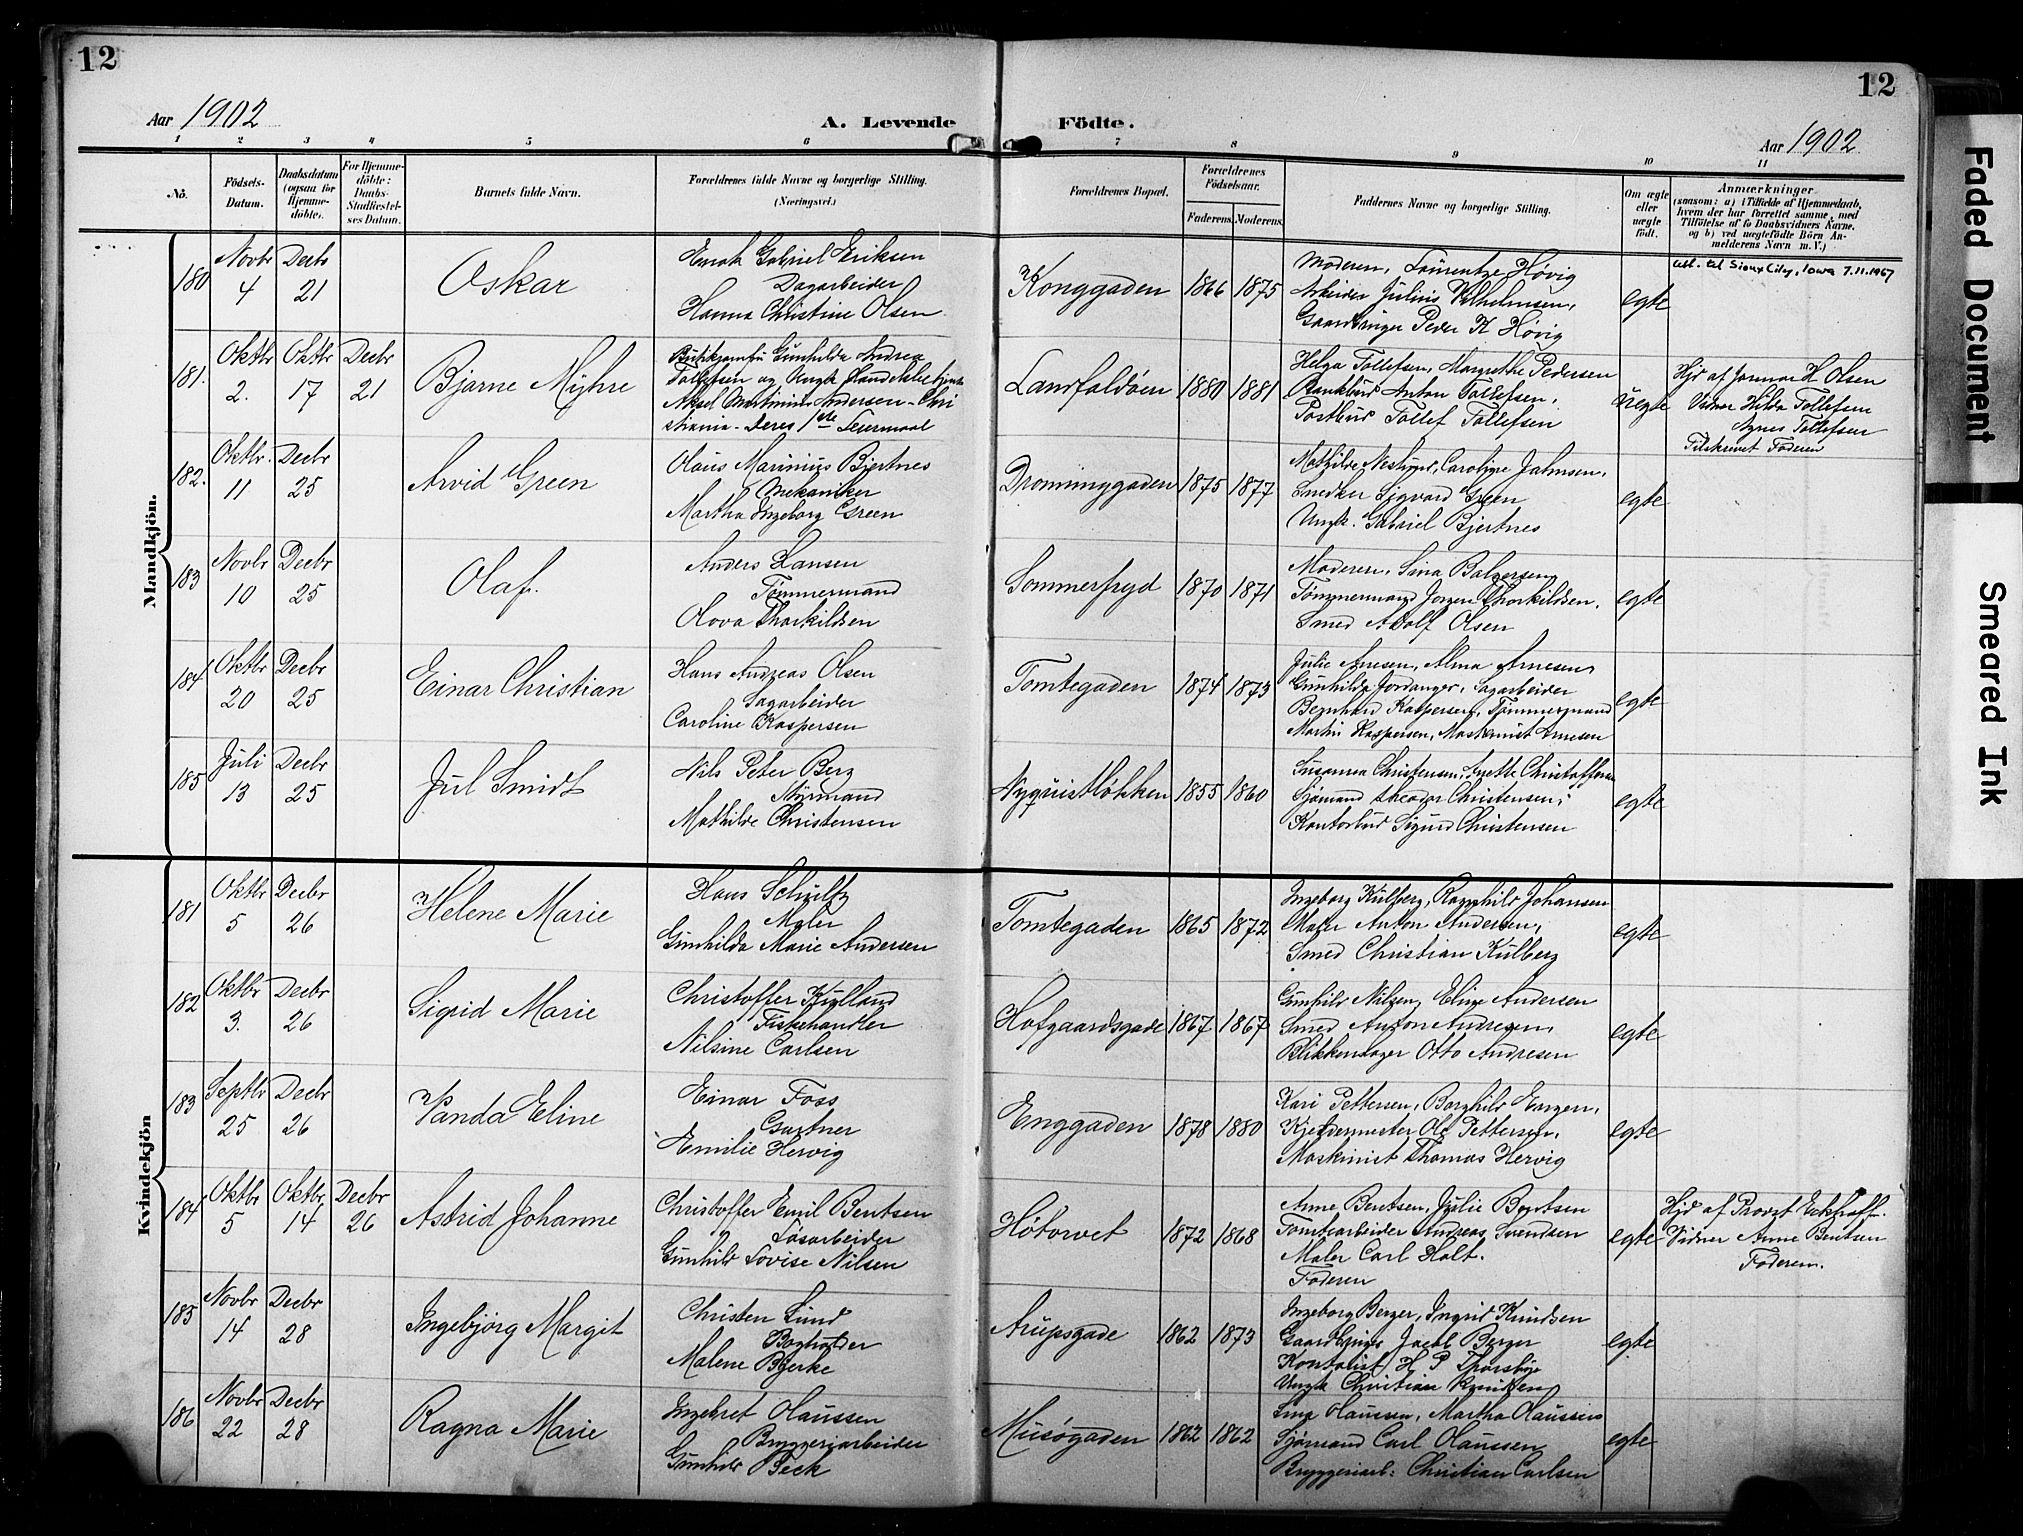 12
12
Aar 1902
A. Levende Födte.
Aar 1902
1 2 3 4 5 6 7 8 9 10 11
No.
Födsels-Datum.
Daabsdatum (ogsaa for Hjemme-döbte).
For Hjemme-döbte: Daabs-Stadfæstelses Datum.
Barnets fulde Navn.
Forældrenes fulde Navne og borgerlige Stilling.
(Næringsvei.)
Forældrenes Bopæl.
Forældrenes Födselsaar.
Faderens. Moderens.
Faddernes Navne og borgerlige Stilling.
Om ægte eller uægte födt.
Anmærkninger
(saasom: a) i Tilfælde af Hjemmedaab, hvem der har forrettet samme, med Tilföielse af to Daabsvidners Navne, og b) ved uægtefödte Börn Anmelderens Navn m. V.)
Mandkjön.
180 Novbr 4 Decbr 21 Oskar
Gabriel Eriksen
Dagarbeider
Hanna Christine Olsen
Konggaden 1866 1875
Moderen, Laurentze Høvig
Arbeider Julius Vilhelmsen,
Gaardbruger Peder K Høvig
egte
att. til Sioux City, Iowa 7.11.1967
181. Oktbr 2. Oktbr 17 Decbr 21 Bjarne Myhre
Gunhilda Andrea
Tollefsen og Ungk
Aksel Martinius Andersen - Chri
stiania - Deres 1ste Leiermaal
Landfaldøen 1880 1881
Helga Tollefsen, Margrethe Pedersen
Bankbud Anton Tollefsen,
Postbud Tollef Tollefsen
uegte
Hjd af Jormor H Olsen
Vidner Hilda Tollefsen
Agnes Tollefsen
Tilskrevet Faderen
182. Oktbr. 11 Decbr 25 Arvid Green
Olaus Marinius Bjertnes
Mekaniker
Martha Ingeborg Green
Dronninggaden 1875 1877
Mathilde Caroline Jahnsen,
Snedker Sigvard Green
Ungk. Gabriel Bjertnes
egte
183 Novbr 10 Decbr 25 Olaf.
Anders Hansen
Tømmermand
Olava Thorkildsen
Sommerfryd 1870 1871
Moderen, Sina Balzersen,
Tømmermand Jorgen Thorkildsen.
Smed Adolf Olsen
egte
184 Oktbr 20 Decbr 25 Einar Christian
Hans Andreas Olsen
Sagarbeider
Caroline Kaspersen
Tomtegaden 1874 1873
Julie Arnesen, Alma Arnesen,
Gunhilda Jordanger, Sagarbeider
Bernhard Kaspersen, Tømmermand
Martin Kaspersen, Maskinist Arnesen
egte
185 Juli 13 Decbr 25 Jul Smidt
Nils Peter Berg
Myrmand
Mathilde Christensen
Nyquistløkken 1855 1860
Susanna Christensen, Anette Christoffersen
Sjømand Theodor Christensen,
Kontorbud Sigurd Christensen
egte
Kvindekjön
181 Oktbr 5 Decbr 26 Helene Marie
Hans Schultz
Maler
Gunhilda Marie Andersen
Tomtegaden 1865 1872
Ingeborg Kulberg, Ragnhild Johansen
Maler Anton Andersen,
Smed Christian Kulberg
egte
182 Oktbr 3. Decbr 26 Sigrid Marie
Christoffer Kulland
Fiskehandler
Nilsine Carlsen
Hofgaardsgade 1867 1867
Gunhild Nilsen, Eline Andersen
Smed Anton Andresen,
Blikkenslager Otto Andresen
egte
183 Septbr 25 Decbr 26 Vanda Eline
Einar Foss
Gartner
Emilie Hervig
Enggaden 1878 1880
Kari Pettersen, Borghild
Kjeldermester Ole Pettersen,
Maskinist Thomas Hervig
egte
184 Oktbr 5 Oktbr 14 Decbr 26 Astrid Johanne
Christoffer Emil Bentsen
Løsarbeider
Gunhild Lovise Nilsen
Høtorvet 1872 1868
Anne Bentsen, Julie Bentsen
Tomtearbeider Andreas Svendsen
Maler Carl Holt.
Faderen
egte
Hjd af Provst Eckhoff.
Vidner Anne Bentsen
Faderen.
185 Novbr 14 Decbr 28 Ingebjørg Margit
Christen Lund
Bogholder
Malene Bjerke
Arupsgade 1862 1873
Ingeborg Berger, Ingrid Knudsen
Gaardbruger Jacob Berger
Kontorist H P Thorsbøe
Ungk Christian Knudsen
egte
186 Novbr 22 Decbr 28 Ragna Marie
Ingebret Olaussen
Bryggeriarbeider
Gunhild Beck
Musøgaden 1862 1862
Lina Olaussen, Martha Olaussen
Sjømand Carl Olaussen
Bryggeriarb: Christian Carlsen
egte
Faded Document
Smeared Ink